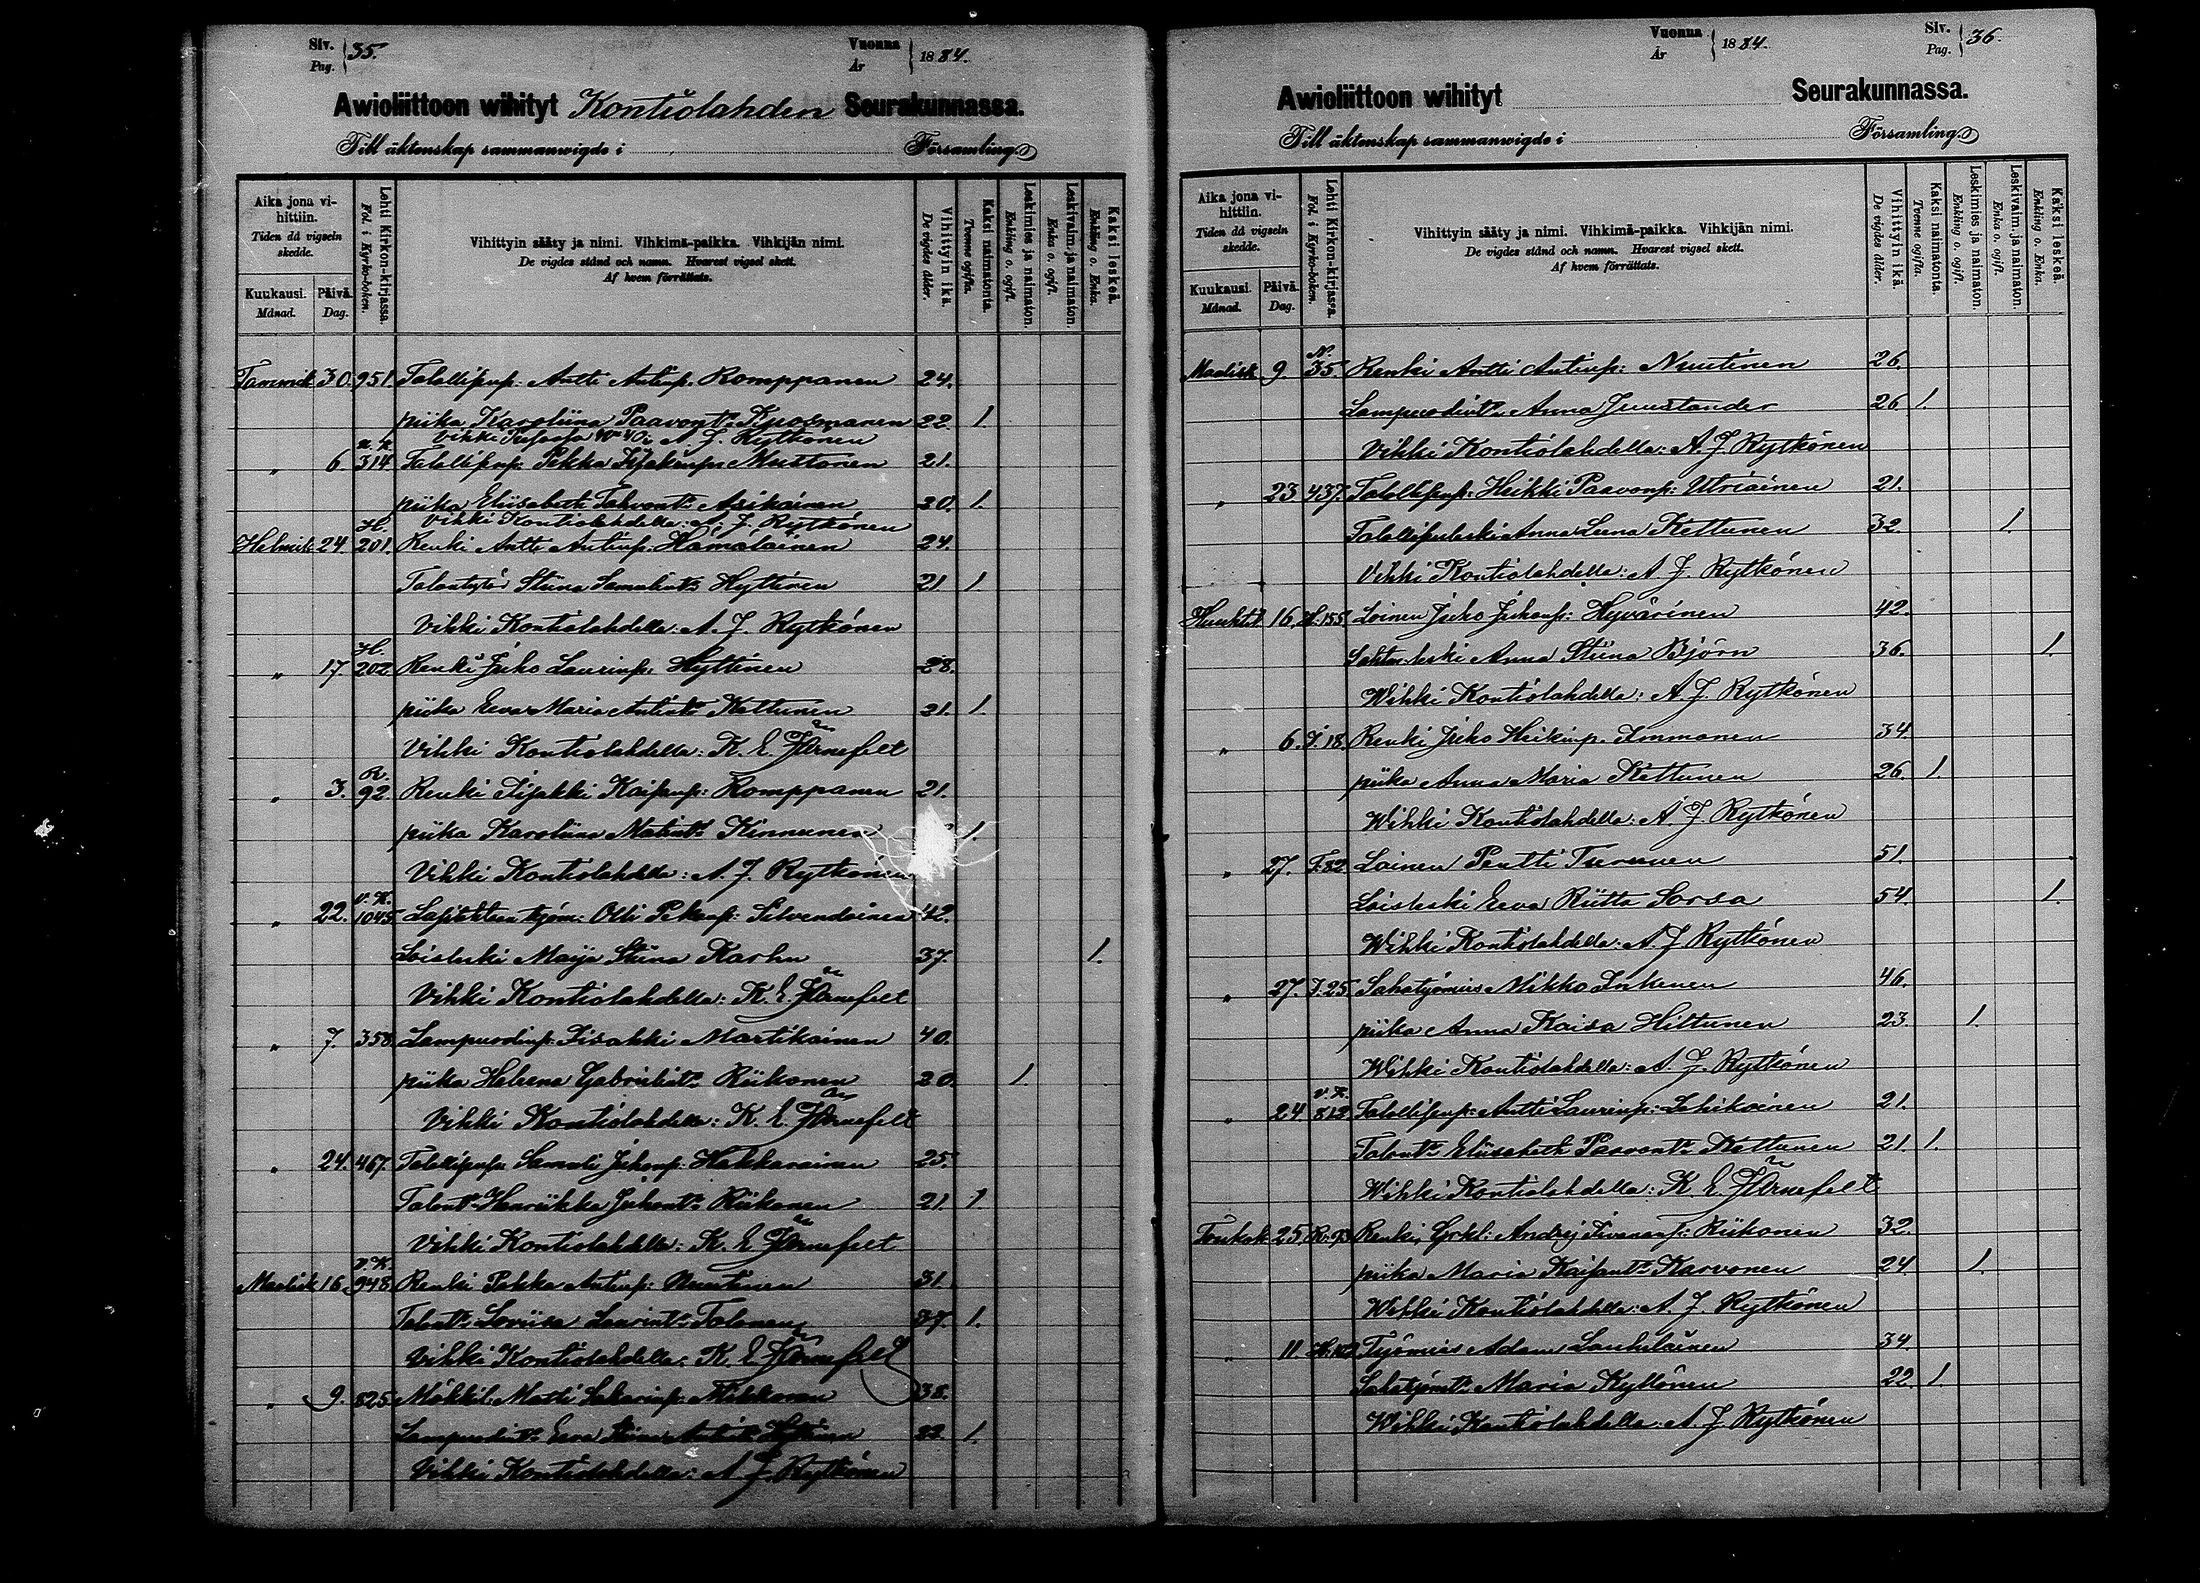 Siv. Pag. 35. Vuonna År 1884.
Awioliittoon wihityt Kontiolahden Seurakunnassa.
Till äktenskap sammanwigde i Församling.
Aika jona vihittiin. Tiden då vigseln skedde.
Kuukausi. Månad. Päivä. Dag.
Lehti Kirkon-kirjassa. Fol. i Kyrko-boken.
Vihittyin sääty ja nimi. Vihkimä-paikka. Vihkijän nimi.
De vigdes stånd och namn. Hvarest vigsel skett.
Af hvem förrättats.
Vihittyin ikä. De vigdes ålder.
Kaksi naimatonta. Tvenne ogifta.
Leskimies ja naimaton. Enkling o. ogift.
Leskivaim. ja naimaton. Enka o. ogift.
Kaksi leskeä. Enkling o. Enka.
Tammik 30. 951. Talollisp. Antti Antinp. Romppanen 24.
piika Karoliina Paavont. Kuosmanen 22. 1.
Vihki A. J. Rytkönen
" 6. 314 Talollisp. Pekka Iisakinp. Mustonen 21.
piika Eliisabeth Tahvont. Asikainen 20. 1.
Vihki Kontiolahdella: A. J. Rytkönen
Helmik 24 H. 201. Renki Antti Antinp. Hämäläinen 24.
Talontytär Stiina Samulint. Hyttinen 21 1.
Vihki Kontiolahdella: A. J. Rytkönen
" 17. H. 202. Renki Juho Laurinp. Hyttinen 28.
piika Eeva Maria Antint. Kettunen 21. 1.
Vihki Kontiolahdella: K. E. Järnefelt
" 3. R. 92. Renki Iisakki Kaisanp: Romppanen 21.
piika Karoliina Matint. Kinnunen 1.
Vihki Kontiolahdella: A. J. Rytkönen
" 22. V.K. 1045. Olli Pekanp: Silvendoinen 42.
Loisleski Maija Stiina Karhu 37. 1.
Vihki Kontiolahdella: K. E. Järnefelt
" 7. 358. Lampuodinp. Iisakki Martikainen 40.
piika Helena Gabrielint. Riikonen 20. 1.
Vihki Kontiolahdella: K. E. Järnefelt
" 24. 467. Talollisp. Samuli Juhonp: Hakkarainen 25.
Talont. Henriikka Juhont. Riikonen 21. 1.
Vihki Kontiolahdella: K. E. Järnefelt
Maalisk 16. V.K. 948. Renki Pekka Antinp: Nuutinen 31.
Talont. Loviisa Laurint. Tolonen 27. 1.
Vihki Kontiolahdella: K. E. Järnefelt
" 9. 825. Mökkil. Matti Sakarinp. Mikkonen 38.
Lampuodint. Eeva Stiina Antint. 22. 1.
Vihki Kontiolahdella: A. J. Rytkönen
Vuonna År 1884. Siv. Pag. 36.
Awioliittoon wihityt Seurakunnassa.
Till äktenskap sammanwigde i Församling.
Aika jona vihittiin. Tiden då vigseln skedde.
Kuukausi. Månad. Päivä. Dag.
Lehti Kirkon-kirjassa. Fol. i Kyrko-boken.
Vihittyin sääty ja nimi. Vihkimä-paikka. Vihkijän nimi.
De vigdes stånd och namn. Hvarest vigsel skett.
Af hvem förrättats.
Vihittyin ikä. De vigdes ålder.
Kaksi naimatonta. Tvenne ogifta.
Leskimies ja naimaton. Enkling o. ogift.
Leskivaim. ja naimaton. Enka o. ogift.
Kaksi leskeä. Enkling o. Enka.
Maalisk 9. N. 35. Renki Antti Antinp: Nuutinen 26.
Lampuodint. Anna Juustander 26. 1.
Vihki Kontiolahdella: A. J. Rytkönen
" 23. 437. Talollisp: Heikki Paavonp: Utriainen 21.
Talollisenleski Anna Leena Kettunen 32. 1.
Vihki Kontiolahdella: A. J. Rytkönen
Huuhtik 16. H. 155. Loinen Juho Juhonp: Hyvärinen 42.
leski Anna Stiina Björn 36. 1.
Wihki Kontiolahdella: A. J. Rytkönen
" 6. I. 18. Renki Juho Heikinp. Immonen 34.
piika Anna Maria Kettunen 26. 1.
Wihki Kontiolahdella: A. J. Rytkönen
" 27. T. 82. Loinen Pentti Turunen 51.
Loisleski Eeva Riitta Sorsa 54. 1.
Wihki Kontiolahdella: A. J. Rytkönen
" 27. I. 25. Sahatyömies Mikko Inkinen 46.
piika Anna Kaisa Hiltunen 23. 1.
Wihki Kontiolahdella: A. J. Rytkönen
" 24 V.K. 812. Talollisp: Antti Laurinp: Lehikoinen 21.
Talont. Eliisabeth Paavont. Kettunen 21. 1.
Wihki Kontiolahdella: K. E. Järnefelt
Toukok 25. R. 93. Renki, Grkl: Andrej Iivananp: Riikonen 32.
piika Maria Kaisant. Karvonen 24 1.
Wihki Kontiolahdella: A. J. Rytkönen
" 11. Työmies Adam Laukkainen 34.
Sahatyömt. Maria Kyllönen 22. 1.
Wihki Kontiolahdella: A. J. Rytkönen